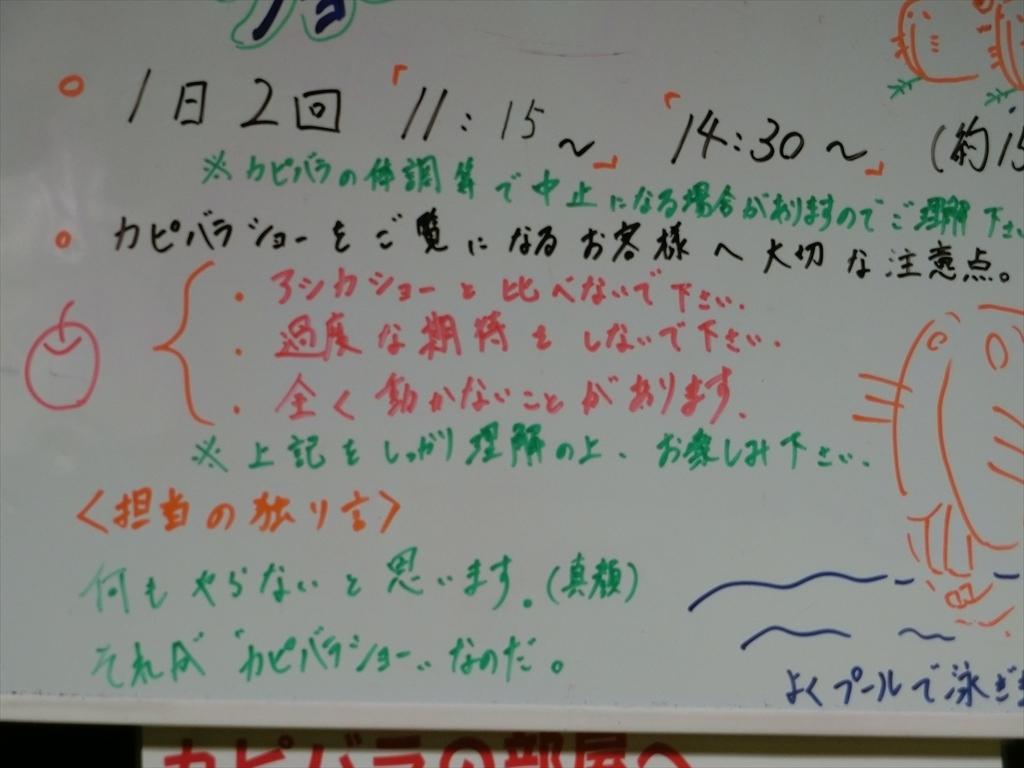 ショー
○ 1日2回 「11:15~」 「14:30~」 (約15
※カピバラの体調等で中止になる場合がありますのでご理解下さい
○ カピバラショーをご覧になるお客様へ大切な注意点。
・アシカショーと比べないで下さい.
・過度な期待をしないで下さい.
・全く動かないことがあります.
※上記をしっかり理解の上、お楽しみ下さい.
<担当の独り言>
何もやらないと思います。(真顔)
それが“カピバラショー”なのだ。
よくプールで泳ぎま
カピバラの部屋へ